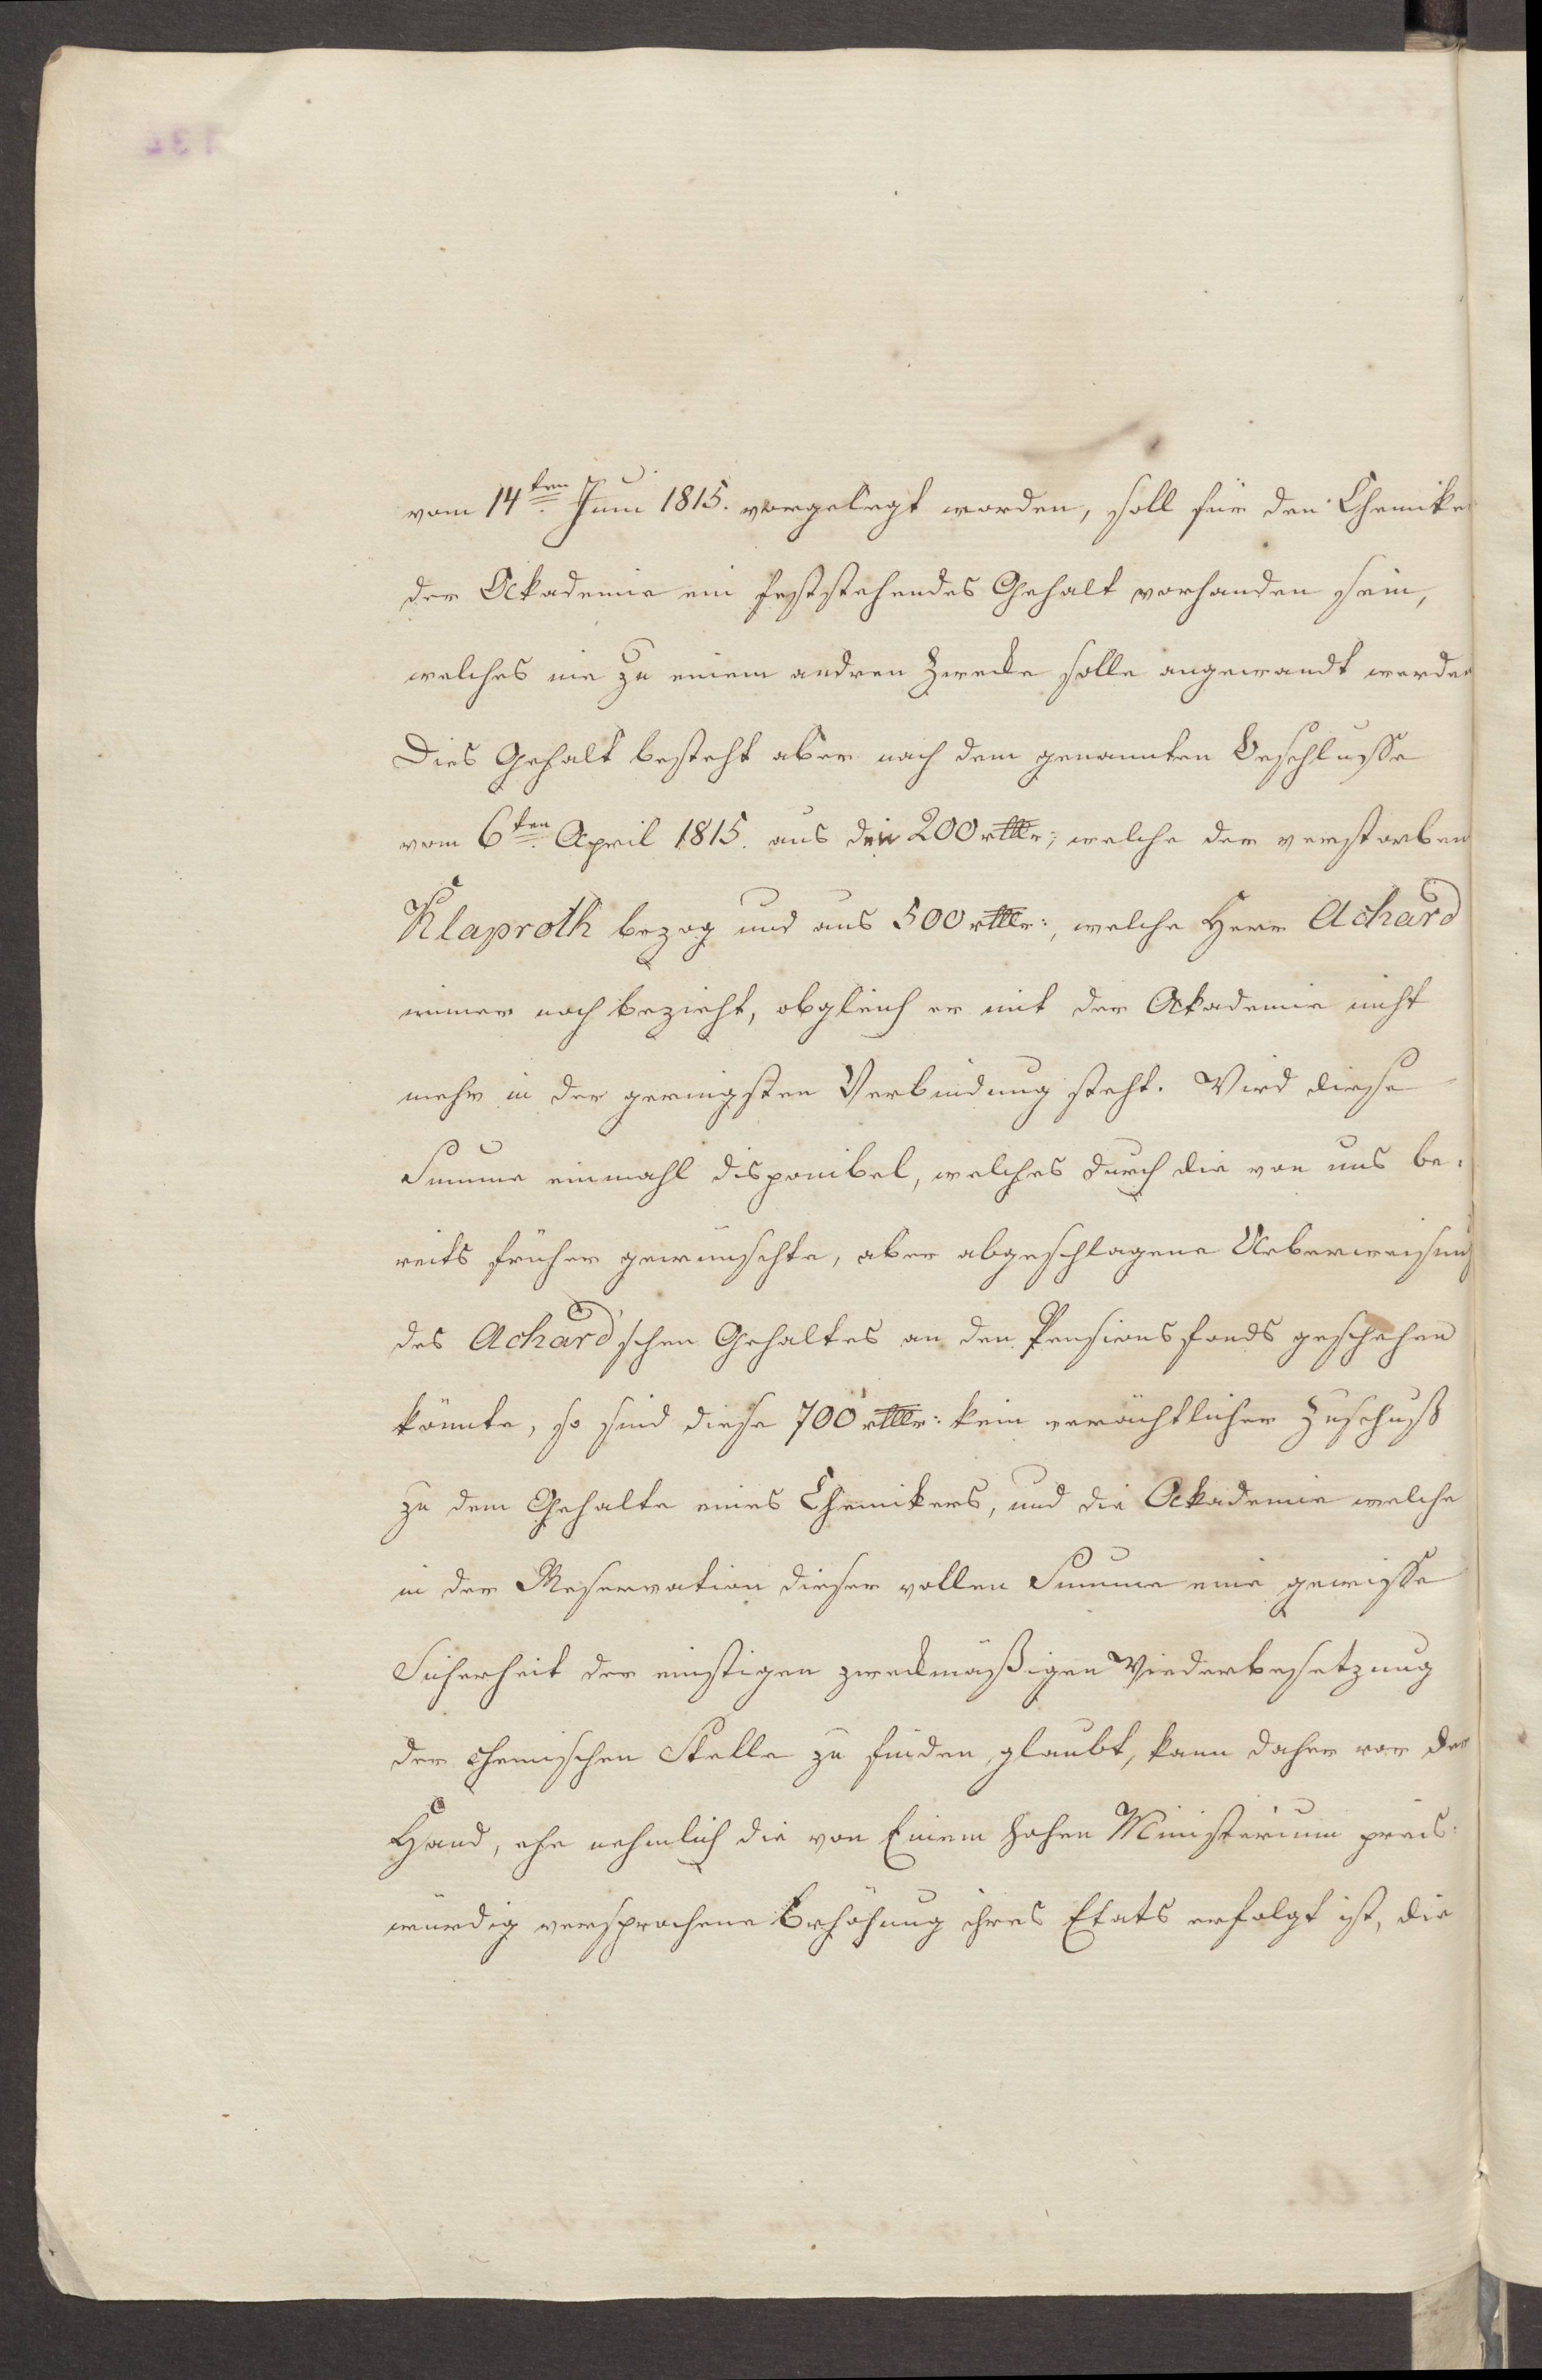 vom 14ten Juni 1815. vorgelegt worden, soll für den Chemike
der Akademie ein feststehendes Gehalt vorhanden sein,
welches nie zu einem andren Zwecke solle angewandt werden
Dies Gehalt besteht aber nach dem genannten Beschlusse
vom 6ten April 1815. aus den 200 rthlr; welche der verstorbene
Klaproth bezog und aus 500 rthlr:, welche Herr Achard
immer noch bezieht, obgleich er mit der Akademie nicht
mehr in der geringsten Verbindung steht. Wird diese
Summe einmahl disponibel, welches durch die von uns be-
reits früher gewünschte, aber abgeschlagene Ueberweisung
des Achard'schen Gehaltes an den Pensionsfonds geschehen
könnte, so sind diese 700 rthlr: kein verächtlicher Zuschuß
zu dem Gehalte eines Chemikers, und die Akademie welche
in der Reservation dieser vollen Summe eine gewisse
Sicherheit der einstigen zweckmäßigen Wiederbesetzung
der chemischen Stelle zu finden glaubt, kann daher vor der
Hand, ehe nehmlich die von Einem hohen Ministerium preis-
würdig versprochene Erhöhung ihres Etats erfolgt ist, die